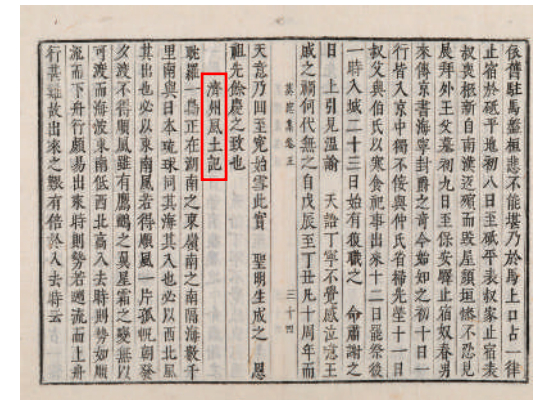 係舊駐馬盤桓悲不能堪乃於馬上口占一律
止宿於砥平地初八日至砥平表叔家止宿表
叔喪柩新自南漢返殯而毀屋頹垣慘不忍見
展拜外王父墓初九日至保安驛止宿奴春男
來傳京書海寧封爵之音今始知之初十日一
行皆入京中獨不佞與仲氏省掃先塋十一日
叔父與伯氏以寒食祀事出來十二日罷祭後
一時入城二十三日始有復職之 命肅謝之
日 上引見溫諭 天語丁寧不覺感泣噫王
戚之禍何代無之自戊辰至丁丑凡十周年而
葵窓集卷五 三十四
天意乃回至冤始雪此實 聖明生成之 恩
祖先餘慶之致也
濟州風土記
耽羅一島正在湖南之東嶺南之南隔海數千
里南與日本琉球同其海其入也必以西北風
其出也必以東南風若得順風一片孤帆朝發
夕渡不得順風雖有鷹鸇之翼星霜之變無以
可渡而海波東南低西北高入去時則勢如順
流而下舟行頗易出來時則勢若遡流而上舟
行甚難故出來之艱有倍於入去時云